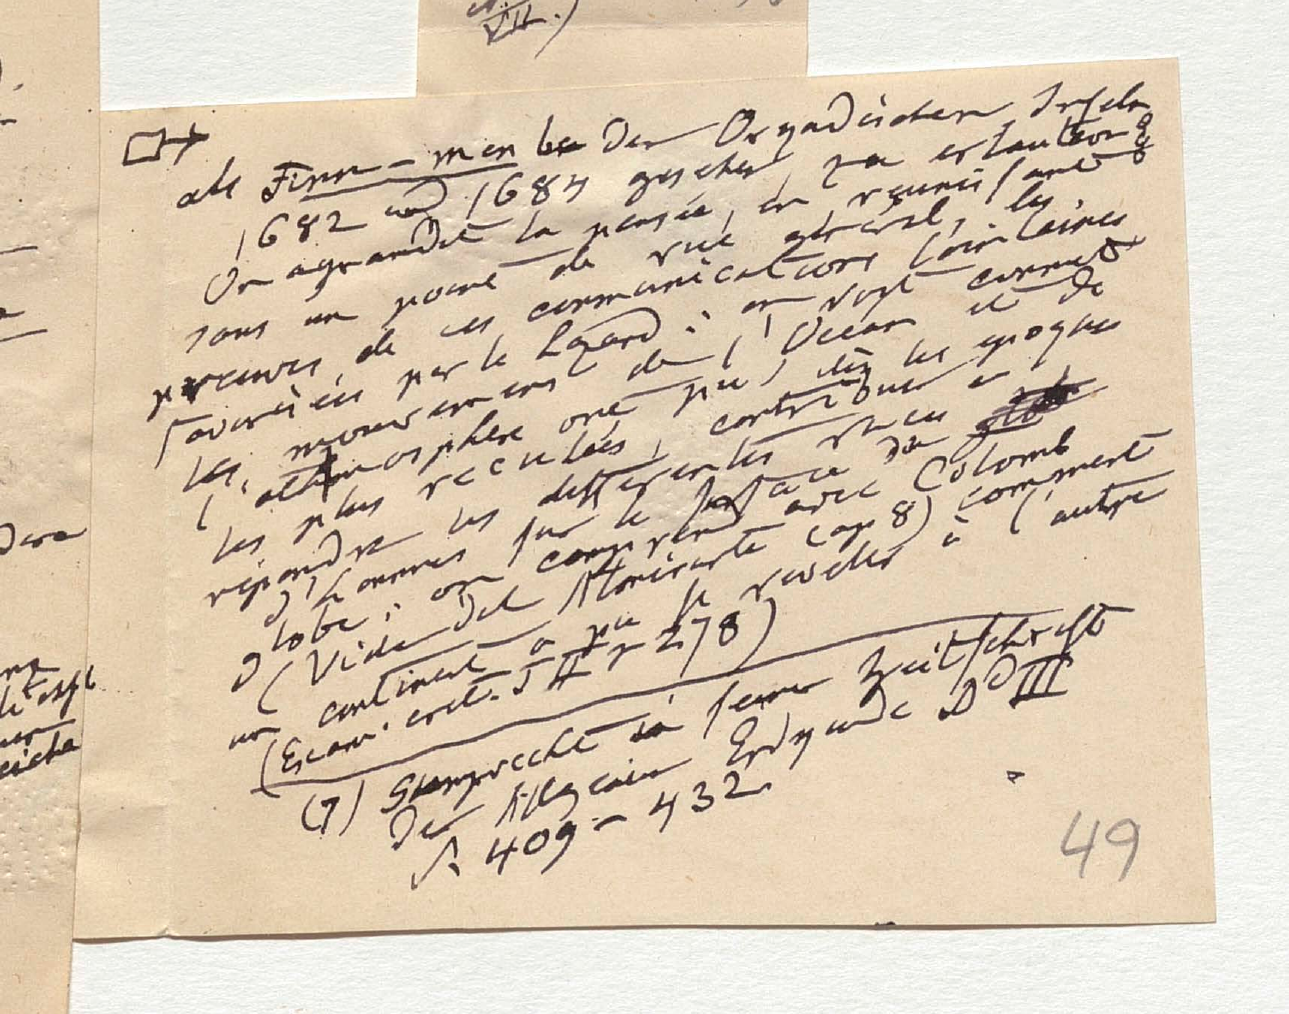 VII.)
als Finn-men be Den Orcadischen Inseln
1682 und 1684 gesehen, zu erläutern:
On agrandit la pensée, en réunissant
sous un point de vue général, les
preuves de ces communications lointaines
favorisées par le hazard; on voit comment
les mouvemens de l'Océan et de
l'atmosphère ont pu, dès les époques
les plus reculées, contribuer à
répandre les différentes races
d'hommes sur la surface du
globe; on comprend avec Colomb
(Vida del Almirante cap 8) comment
un continent a pu se révéler à l'autre
(Exam. crit. T II p 278)
(7) Gumprecht in seiner Zeitschrift
der Allgemein Erdkunde Bd III
S. 409–432
49